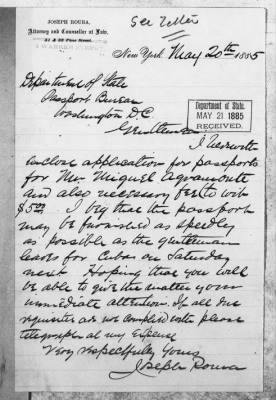 See letter
JOSEPH ROURA,
Attorney and Counselor at Law,
New York May 20th 1885
Department of State
Passport Bureau
Washington D.C.
Gentlemen
Department of State.
MAY 21 1885
RECEIVED.
I herewith
enclose application for passports
for Mr. Miguel Agramonte
and also necessary fee to wit
$5.00 I beg that the passport
may be furnished as speedly
as possible as the gentleman
leaves for Cuba on Saturday
next Hoping that you will
be able to give this matter your
immediate attention. If all due
requisites are not complied with please
telegraph at my expense
Very respectfully Yours
Joseph Roura